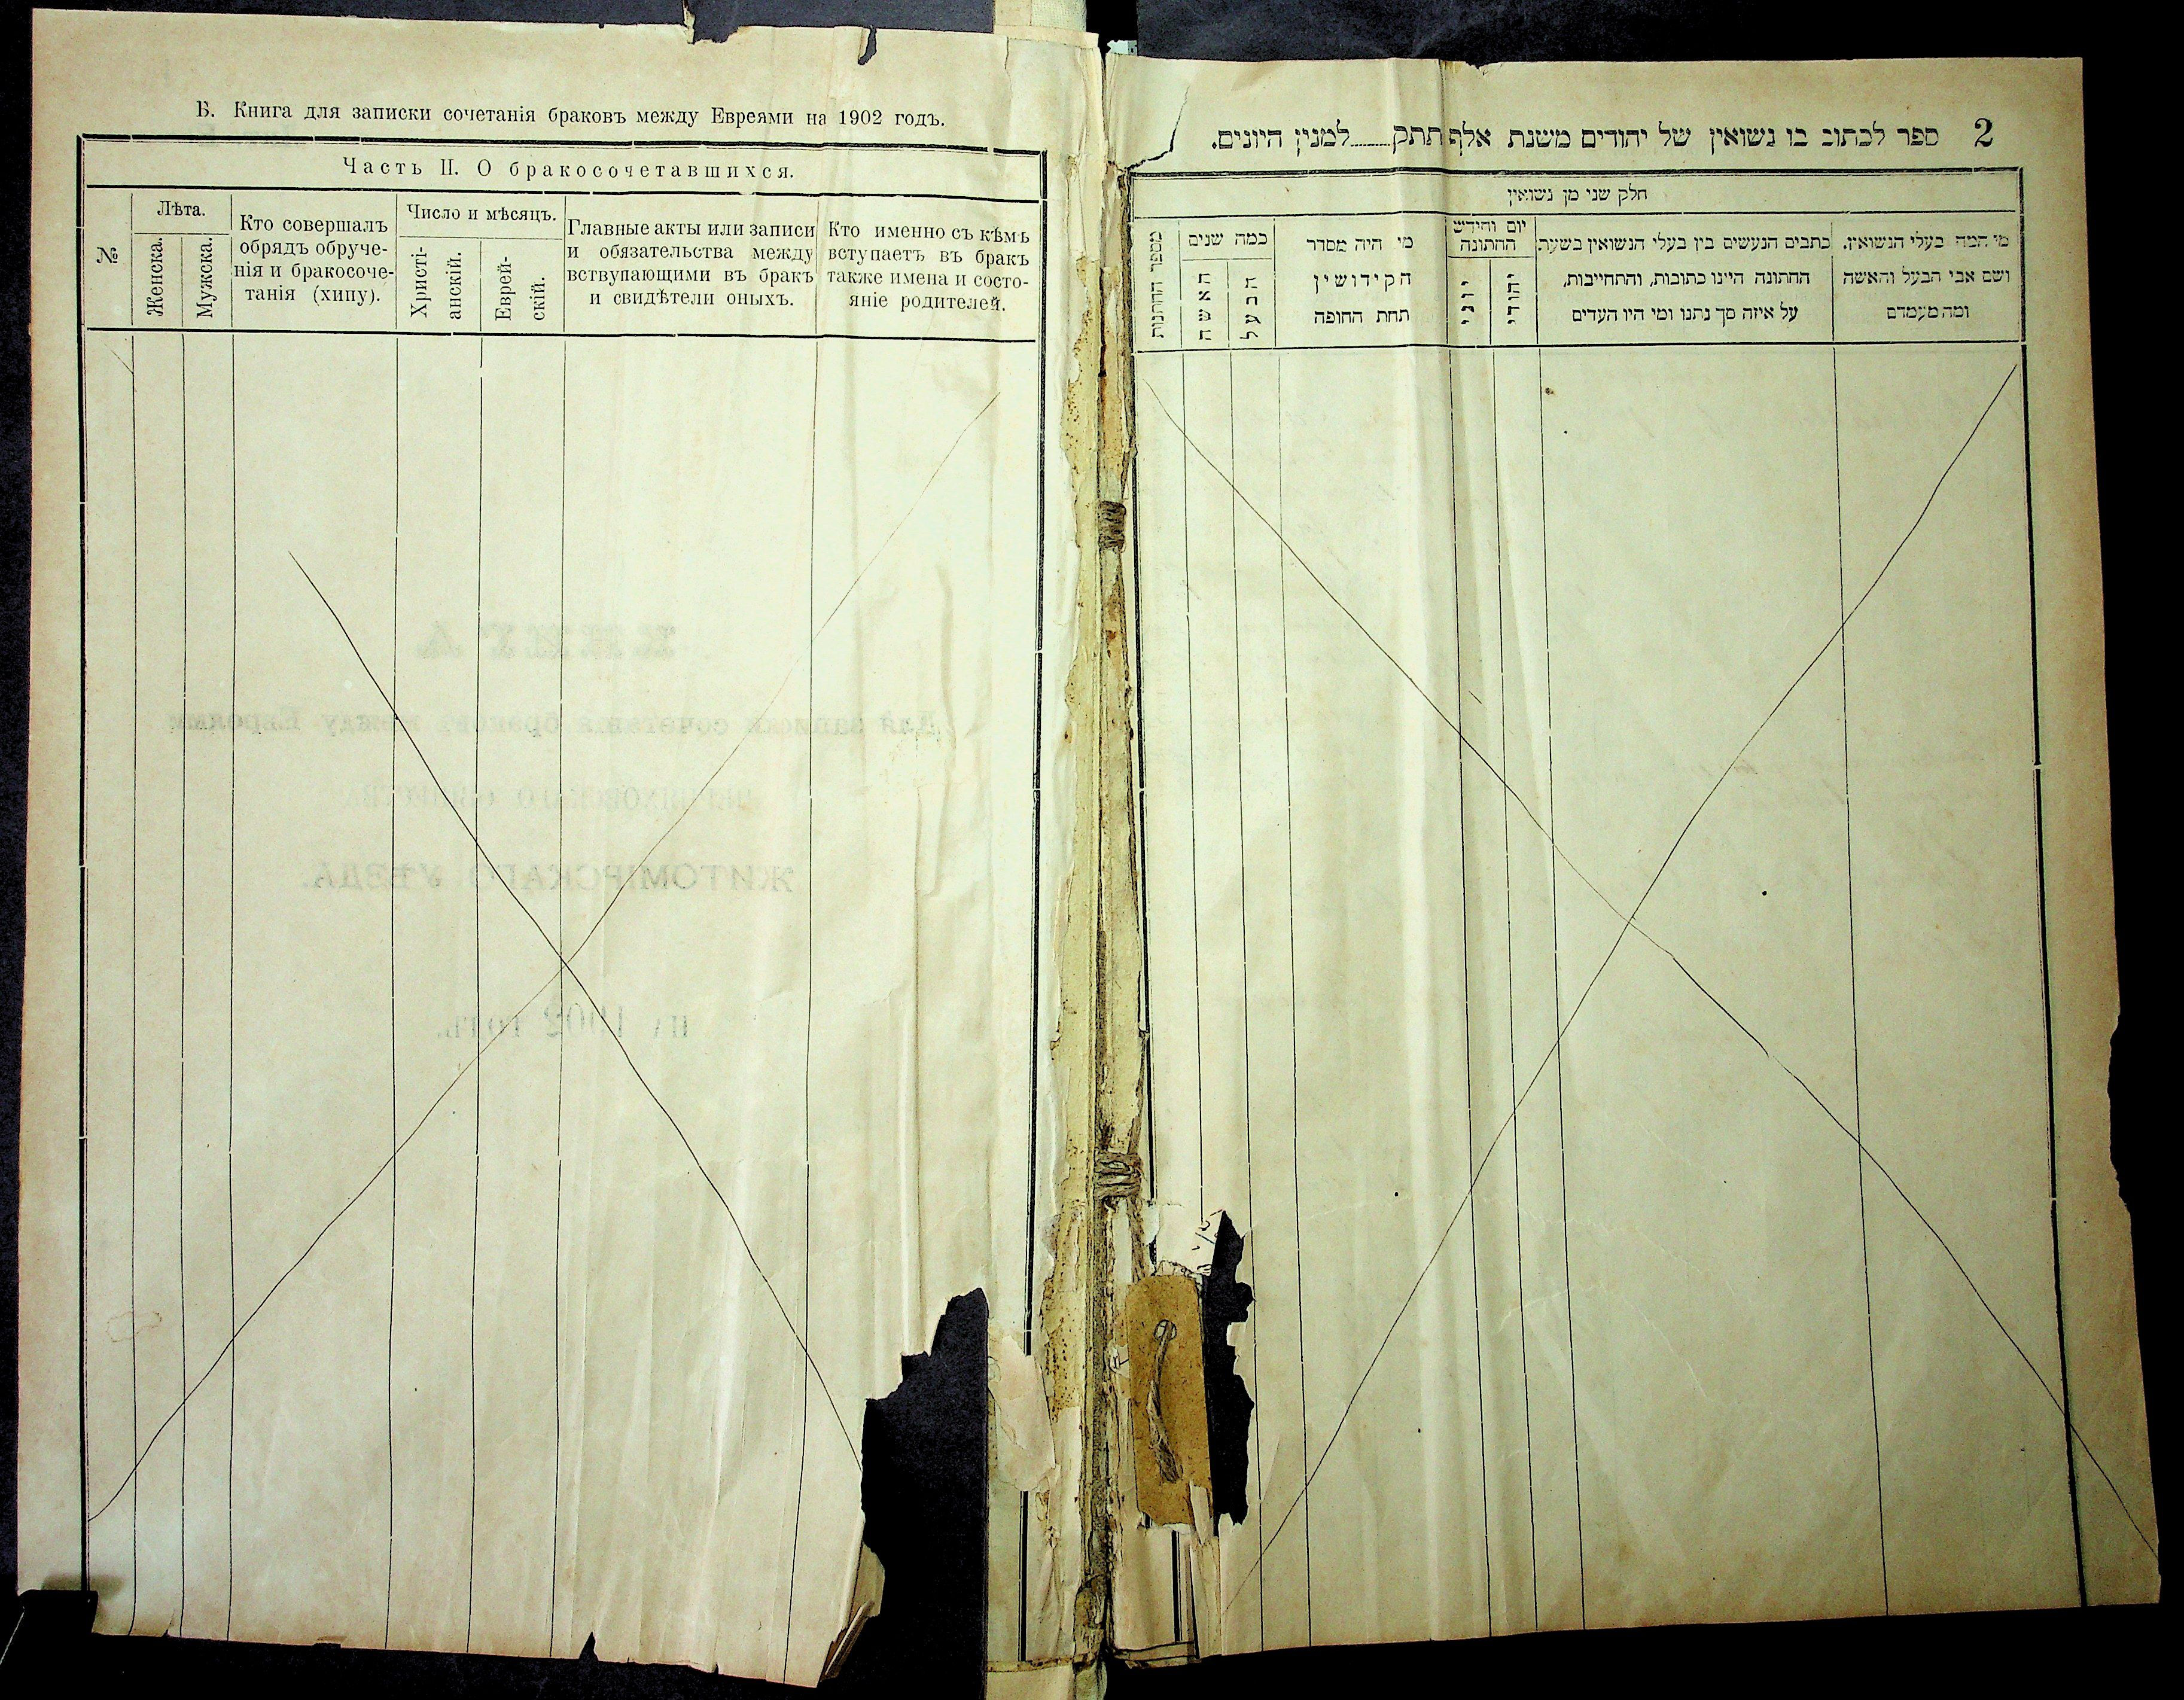 Б. Книга для записки сочетанія браковъ между Евреями на 1902 годъ.
Часть II. О бракосочетавшихся.
№
Лѣта.
Женска.
Мужска.
Кто совершалъ
обрядъ обруче-
нія и бракосоче-
танія (хипу).
Число и мѣсяцъ.
Христі-
анскій.
Еврей-
скій.
Главные акты или записи
и обязательства между
вствупающими въ бракъ
и свидѣтели оныхъ.
Кто именно съ кѣмъ
вступаетъ въ бракъ
также имена и состо-
яніе родителей.
КНИГА
Для записки сочетанія браковъ между Евреями
ЖИТОМІРСКАГО УѢЗДА.
на 1902 годъ.
2 ספר לכתוב בו נשואין של יהודים משנת אלף תתק למנין היונים.
חלק שני מן נשואין
מי המה בעלי הנשואין.
ושם אבי הבעל והאשה
ומה מעמדם
כתבים הנעשים בין בעלי הנשואין בשעת
החתונה היינו כתובות, והתחייבות,
על איזה סך נתנו ומי היו העדים
יום וחידש
החתונה
יהודי
יוני
מי היה מסדר
הקידושין
תחת החופה
כמה שנים
הבעל
האשה
מספר החתנות